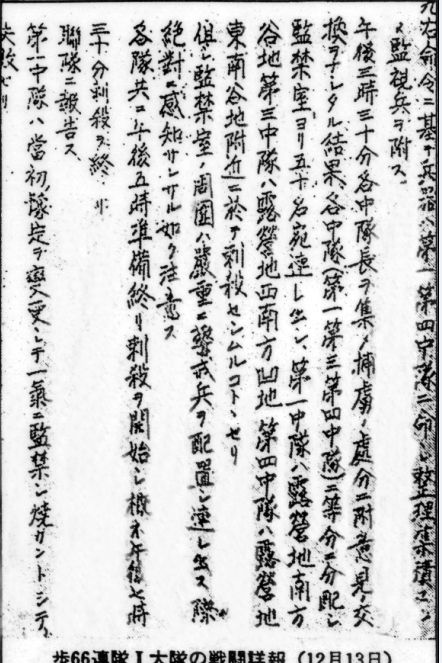 九右命令ニ基キ兵器ハ第一第四中隊ニ命シ整理集積セシ
メ監視兵ヲ附ス
午後三時三十分各中隊長ヲ集メ捕虜ノ處分ニ附意見交
換ヲナシタル結果各中隊(第一第三第四中隊)ニ等分ニ分配シ
監禁室ヨリ五十名宛連レ出シ、第一中隊ハ露營地南方
谷地第三中隊ハ露營地西南方凹地第四中隊ハ露營地
東南谷地附近ニ於テ刺殺セシムルコトヽセリ
但シ監禁室ノ周圍ハ嚴重ニ警戒兵ヲ配置シ連レ出ス際
絶對ニ感知サレサル如ク注意ス
各隊共ニ午後五時準備終リ刺殺ヲ開始シ概ネ午後七時
三十分刺殺ヲ終リ
聯隊ニ報告ス
第一中隊ハ當初ノ豫定ヲ變更シテ一氣ニ監禁シ燒カントシテ
失敗セリ
歩66連隊Ⅰ大隊の戦闘詳報(12月13日)